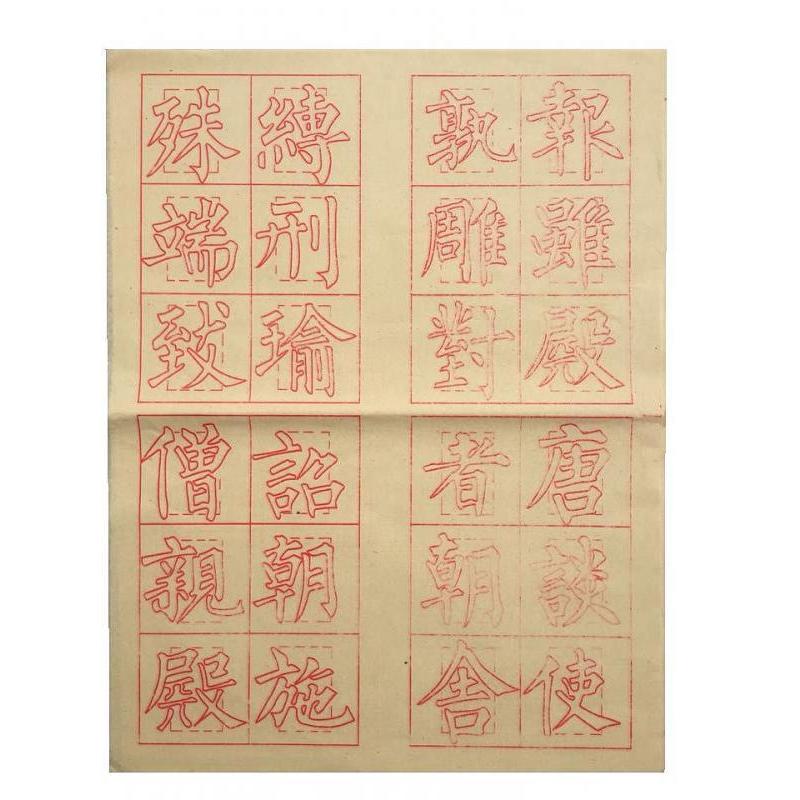 報雖殿
孰雕對
縛刑瑜
殊端致
唐談使
者朝舍
詔朝施
僧親殿